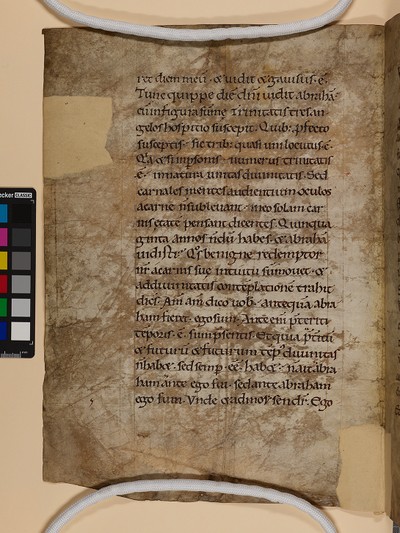 ret diem meũ · & vidit & gauisus · ẽ ·
Tunc quippe diẽ dñi uidit abrahã ·
cũ in figura sũme trinitatis tres an
gelos hospitio suscepit. Quib; p̱fecto
susceptis · sic trib; quasi uni locutus · ẽ ·
Q̃a & si in p̱sonis · numerus trinitatis
· ẽ · in natura unitas diuinitatis · Sed
carnales mentes audientium oculos
a carne ñ subleuant · in eo solam car
nis etatẽ pensant dicentes · Quinqua
ginta annos habes · & abrahã
uidisti · Q̃s benigne redemptor
ñr a carnis suę intuitu sũmouet · &
ad diuinitatis contẽplationẽ trahit
dicẽs · Am̃ am̃ dico uob · antequã abra
ham fieret · ego sum · Ante eni p̃teriti
tẽporis · ẽ · sum p̃sentis · Et quia p̃teritũ
& futurũ tẽp diuinitas
ñ habet · sed semp · ẽẽ · habet · ñ ait abra
ham ante ego fui · sed ante abraham
ego sum · Vnde & ad moysen dr̃ · Ego